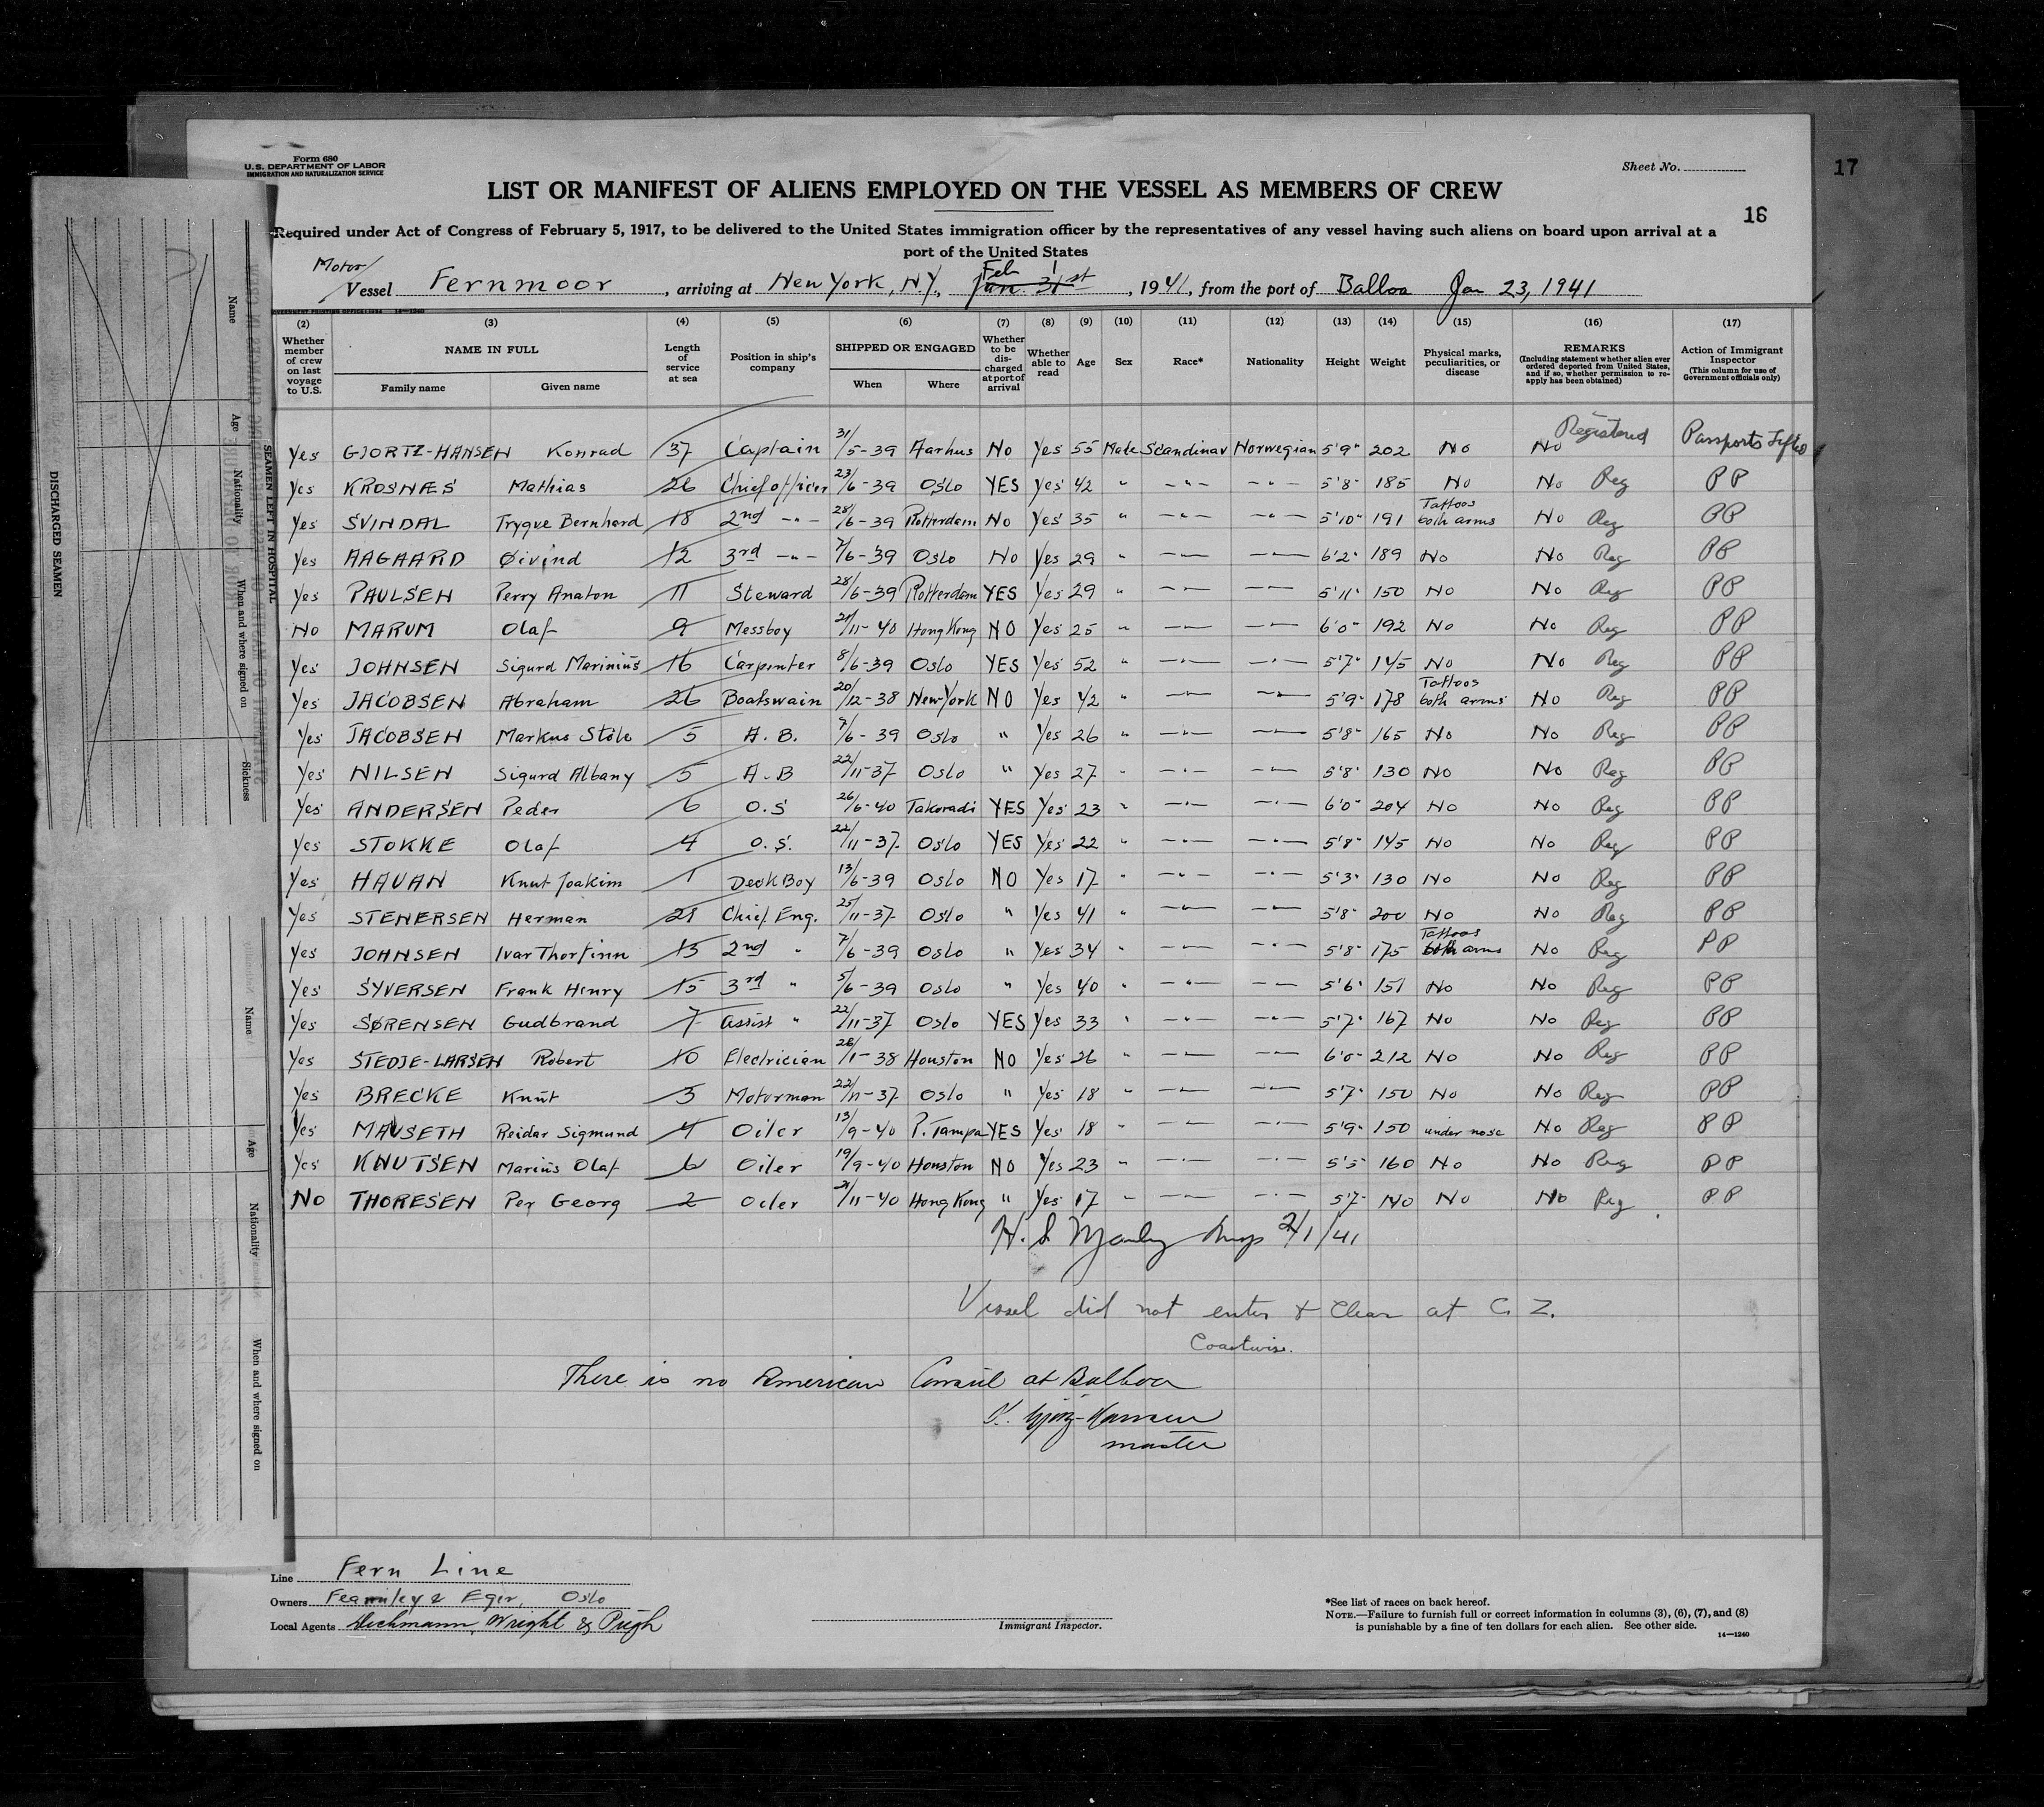 Form 680
U.S. DEPARTMENT OF LABOR
IMMIGRATION AND NATURALIZATION SERVICE
Sheet No.
17
LIST OR MANIFEST OF ALIENS EMPLOYED ON THE VESSEL AS MEMBERS OF CREW
16
Required under Act of Congress of February 5, 1917, to be delivered to the United States immigration officer by the representatives of any vessel having such aliens on board upon arrival at a
port of the United States
Motor/ Feb 1
Vessel Fernmoor, arriving at New York, N.Y., Jan. 31st, 1941, from the port of Balboa Jan 23, 1941
(2) (3) (4) (5) (6) (7) (8) (9) (10) (11) (12) (13) (14) (15) (16) (17)
Whether member of crew on last voyage to U.S. NAME IN FULL Family name Given name Length of service at sea Position in ship's company SHIPPED OR ENGAGED When Where Whether to be discharged at port of arrival Whether able to read Age Sex Race* Nationality Height Weight Physical marks, peculiarities, or disease REMARKS (Including statement whether alien ever ordered deported from United States, and if so, whether permission to reapply has been obtained) Action of Immigrant Inspector (This column for use of Government officials only)
Yes GJORTZ-HANSEN Konrad 37 Captain 31/5-39 Aarhus No Yes 55 Male Scandinav Norwegian 5'9" 202 No No Registered Passports
Yes KROSNÆS Mathias 26 Chief officer 23/6-39 Oslo YES Yes 42 " -"- -"- 5'8" 185 No No Reg PP
Yes SVINDAL Trygve Bernhard 18 2nd -"- 28/6-39 Rotterdam No Yes 35 " -"- -"- 5'10" 191 Tattoos both arms No Reg PP
Yes AAGAARD Øivind 12 3rd -"- 7/6-39 Oslo No Yes 29 " -"- -"- 6'2" 189 No No Reg PP
Yes PAULSEN Perry Anaton 11 Steward 28/6-39 Rotterdam YES Yes 29 " -"- -"- 5'11" 150 No No Reg PP
No MARUM Olaf 9 Messboy 21/11-40 Hong Kong NO Yes 25 " -"- -"- 6'0" 192 No No Reg PP
Yes JOHNSEN Sigurd Marinius 16 Carpenter 8/6-39 Oslo YES Yes 52 " -"- -"- 5'7" 145 No No Reg PP
Yes JACOBSEN Abraham 26 Boatswain 20/12-38 New-York NO Yes 42 " -"- -"- 5'9" 178 Tattoos both arms No Reg PP
Yes JACOBSEN Markus Stöle 5 A.B. 7/6-39 Oslo " Yes 26 " -"- -"- 5'8" 165 No No Reg PP
Yes NILSEN Sigurd Albany 5 A.B 22/11-37 Oslo " Yes 27 " -"- -"- 5'8" 130 No No Reg PP
Yes ANDERSEN Peder 6 O.S 26/6-40 Takoradi YES Yes 23 " -"- -"- 6'0" 204 No No Reg PP
Yes STOKKE Olaf 4 O.S. 22/11-37 Oslo YES Yes 22 " -"- -"- 5'8" 145 No No Reg PP
Yes HAVAN Knut Joakim 1 Deck Boy 13/6-39 Oslo NO Yes 17 " -"- -"- 5'3" 130 No No Reg PP
Yes STENERSEN Herman 21 Chief Eng. 25/11-37 Oslo " Yes 41 " -"- -"- 5'8" 200 No No Reg PP
Yes JOHNSEN Ivar Thorfinn 13 2nd " 7/6-39 Oslo " Yes 34 " -"- -"- 5'8" 175 Tattoos both arms No Reg PP
Yes SYVERSEN Frank Henry 15 3rd " 5/6-39 Oslo " Yes 40 " -"- -"- 5'6" 151 No No Reg PP
Yes SØRENSEN Gudbrand 7 Assist " 22/11-37 Oslo YES Yes 33 " -"- -"- 5'7" 167 No No Reg PP
Yes STEDJE-LARSEN Robert 10 Electrician 26/1-38 Houston NO Yes 26 " -"- -"- 6'0" 212 No No Reg PP
Yes BRECKE Knut 3 Motorman 22/11-37 Oslo " Yes 18 " -"- -"- 5'7" 150 No No Reg PP
Yes MAUSETH Reidar Sigmund 4 Oiler 13/9-40 P. Tampa YES Yes 18 " -"- -"- 5'9" 150 under nose No Reg PP
Yes KNUTSEN Marius Olaf 6 Oiler 19/9-40 Houston NO Yes 23 " -"- -"- 5'5" 160 No No Reg PP
NO THORESEN Per Georg 2 Oiler 21/11-40 Hong Kong " Yes 17 " -"- -"- 5'7" NO No No Reg PP
2/1/41
Vessel did not enter & Clear at C. Z.
Coastwise.
There is no American Consul at Balboa
K. Gjörtz-Hansen
master
Line Fern Line
Owners Fearnley & Eger, Oslo
Local Agents Dichmann, Wright & Pugh
Immigrant Inspector.
*See list of races on back hereof.
NOTE.—Failure to furnish full or correct information in columns (3), (6), (7), and (8)
is punishable by a fine of ten dollars for each alien. See other side.
14—1240
DISCHARGED SEAMEN
SEAMEN LEFT IN HOSPITAL
Name Age Nationality When and where signed on Sickness
Name Age Nationality When and where signed on